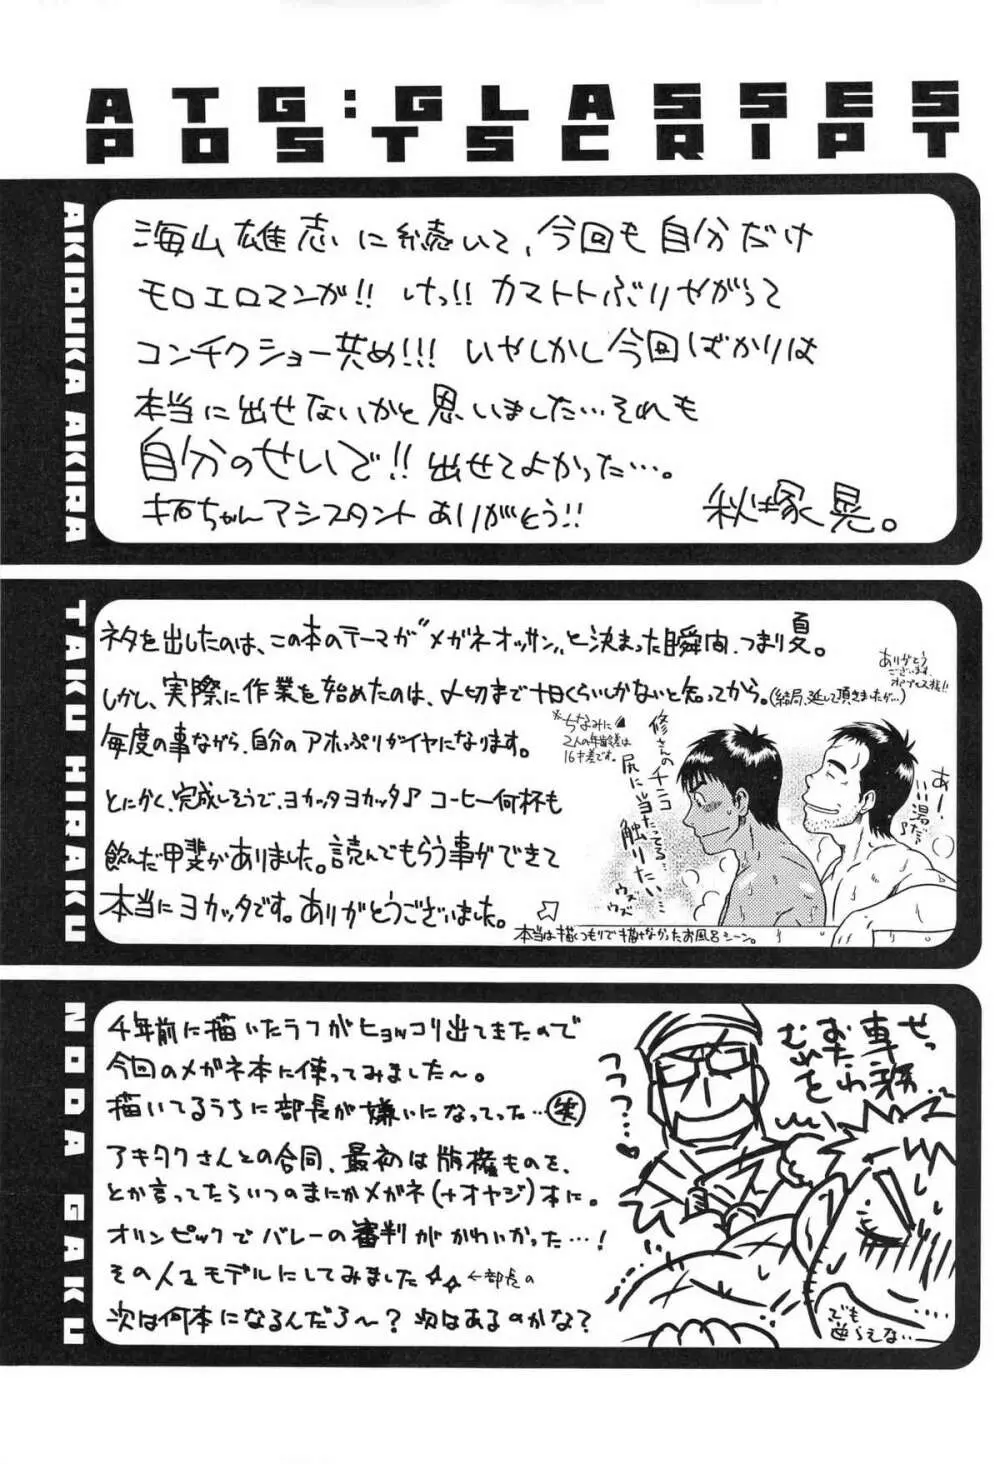 ATG:GLASSES
POSTSCRIPT
AKIDUKA AKIRA
海山雄志に続いて、今回も自分だけ
モロエロマンが!! けっ!! カマトトぶりやがって
コンチクショー共め!!! いやしかし今回ばかりは
本当に出せないかと思いました…それも
自分のせいで!! 出せてよかった…。
ちゃんアシスタントありがとう!!
秋塚晃。
TAKU HIRAKU
ネタを出したのは、この本のテーマが“メガネオッサン”と決まった瞬間、つまり夏。
しかし、実際に作業を始めたのは、〆切まで十日くらいしかないと知ってから。(結局、延して頂きましたが…)
ありがとう
ございます、
毎度の事ながら、自分のアホっぷりがイヤになります。
とにかく、完成しそうで、ヨカッタヨカッタ♪ コーヒー何杯も
飲んだ甲斐がありました。読んでもらう事ができて
本当にヨカッタです。ありがとうございました。
※ちなみに
2人の年齢差は
16才差です。
修さんのチンコ
尻に当たってる…
触りたい…
ウズ
ウズ
あ!
いい湯だ〜
本当は描くつもりで描けなかったお風呂シーン。
NODA GAKU
4年前に描いたラフがヒョッコリ出てきたので
今回のメガネ本に使ってみました〜。
描いてるうちに部長が嫌いになってった…(笑)
アキタクさんとの合同、最初は版権ものを、
とか言ってたらいつのまにかメガネ(+オヤジ)本に。
オリンピックでバレーの審判がかわいかった…!
その人をモデルにしてみました☆☆ ←部長の
次は何本になるんだろ〜? 次はあるのかな?
フフフ…♥
せっ
専務…
おたわ
むれを
でも
逆らえない…